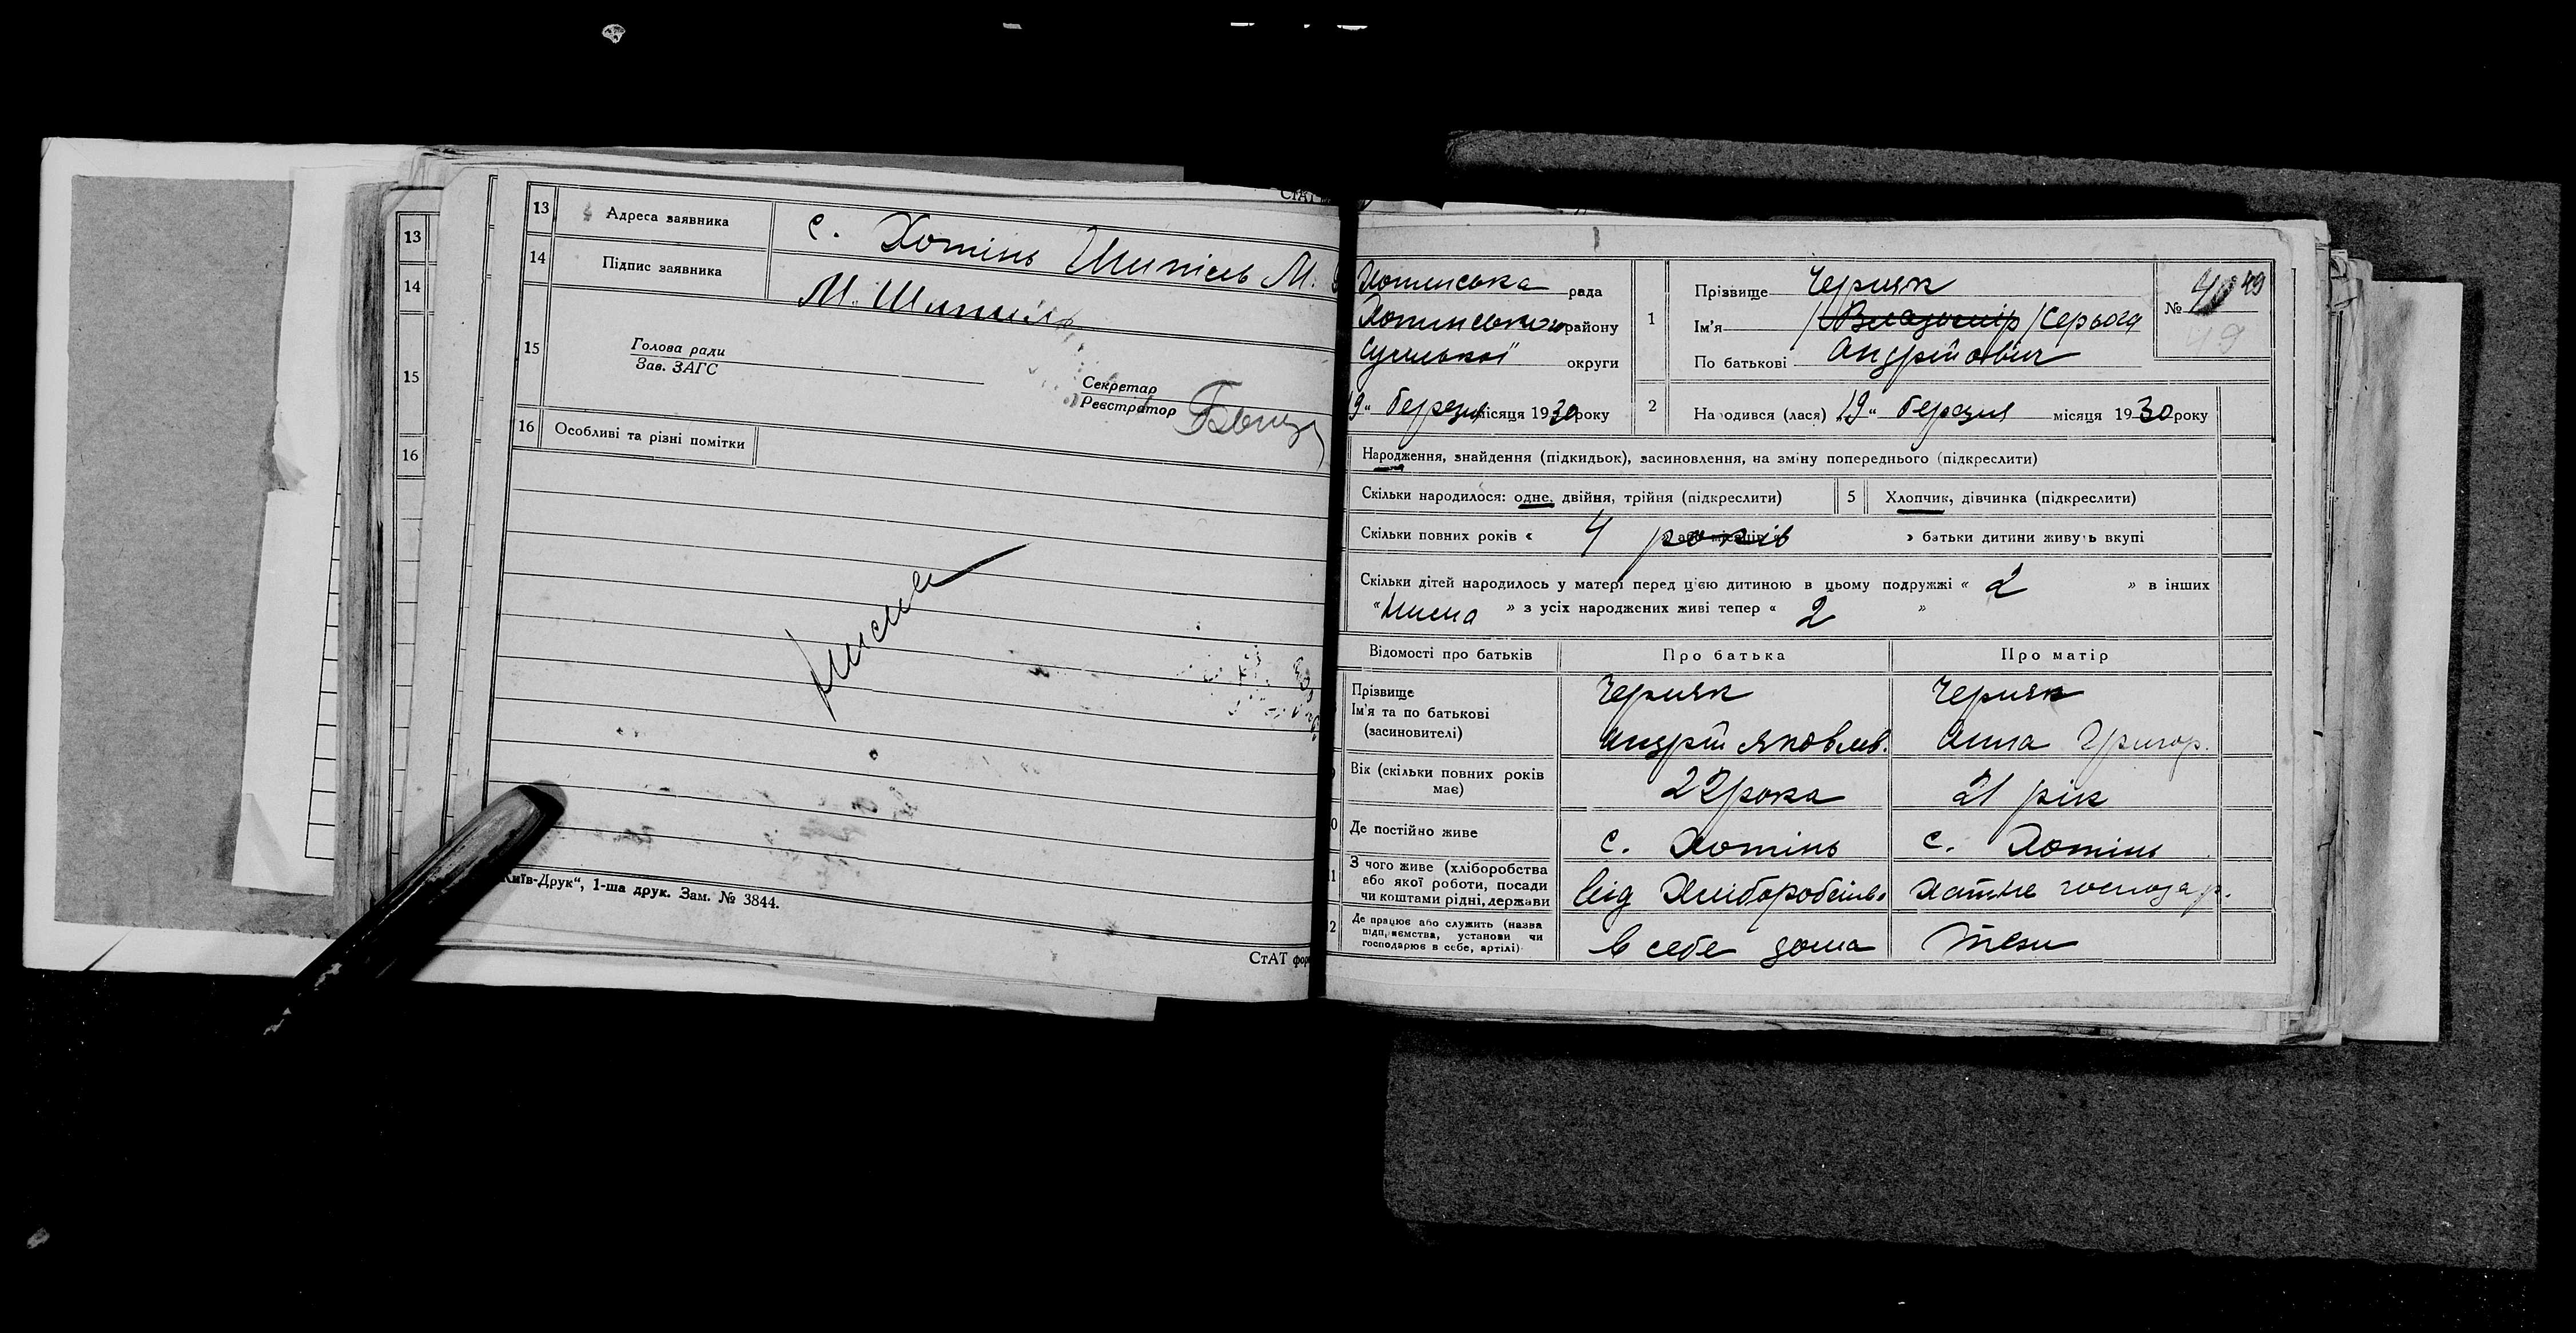 13
14
15
16
13 Адреса заявника с. Хотінь Шипіль М.
14 Підпис заявника М. Шипіль
15 Голова ради
Зав. ЗАГС
Секретар
Реєстратор
16 Особливі та різні помітки
нема
Київ-Друк“, 1-ша друк. Зам. № 3844.
СтАТ фор
Хотинська рада
Хотинського району
Сумської округи
19 „ березня місяця 1930 року
1 Прізвище Черняк
Ім'я Владимір / Серьога
По батькові Андрійович
№ 49
49
2 На одився (лася) 19 „ березня місяця 1930 року
Народження, знайдення (підкидьок), засиновлення, на зміну попереднього (підкреслити)
Скільки народилося: одне, двійня, трійня (підкреслити) 5 Хлопчик, дівчинка (підкреслити)
Скільки повних років « 4 років або місяців » батьки дитини живуть вкупі
Скільки дітей народилось у матері перед цією дитиною в цьому подружжі « 2 » в інших
« Нема » з усіх народжених живі тепер « 2 »
Відомості про батьків Про батька Про матір
Прізвище Черняк Черняк
Ім'я та по батькові
(засиновителі) Андрій Яковлев. Анна Григор.
Вік (скільки повних років
має) 22 рока 21 рік
Де постійно живе с. Хотінь с. Хотінь
З чого живе (хліборобства
або якої роботи, посади
чи коштами рідні, держави від Хліборобств. Хатнє господар.
Де працює або служить (назва
підприємства, установи чи
господарює в себе, артілі) в себе дома Теж